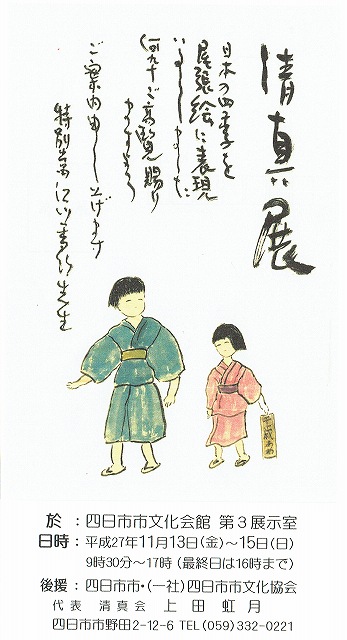 清真展
日本の四季を
尾張絵に表現
いたしました
何卒ご高覧賜り
ますよう
ご案内申し上げます
千歳あめ
於 : 四日市市文化会館 第3展示室
日時 : 平成27年11月13日(金)~15日(日)
9時30分~17時 (最終日は16時まで)
後援 : 四日市市・(一社)四日市市文化協会
代表 清真会 上田虹月
四日市市野田2-12-6 TEL(059)332-0221